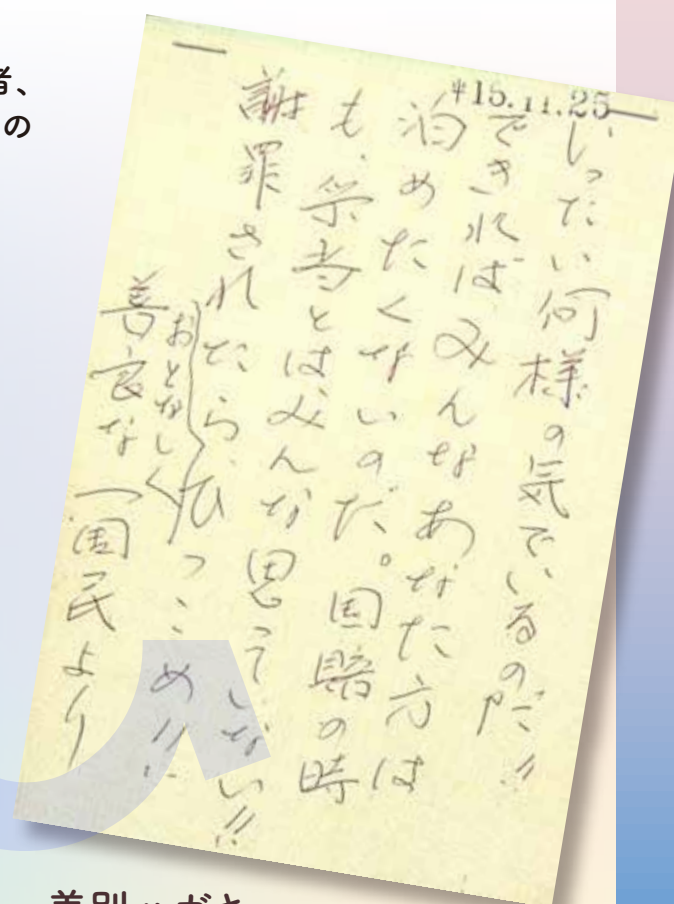 者、
の
平15.11.25
いったい何様の気でいるのだ!!
できればみんなあなた方は
泊めたくないのだ。国賠の時
も、栄当とはみんな思っていない!!
謝罪されたら、ひっこめ!!
おとなしく
善良な一国民より
差別ハガキ